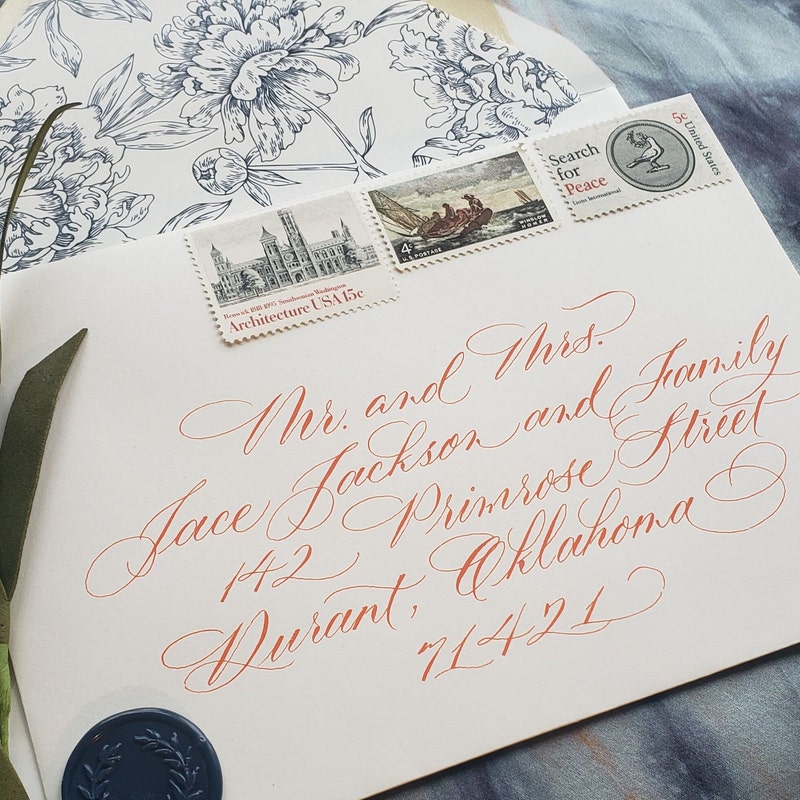 Search
for
Peace
Lions International
5c
United States
4c
U.S. POSTAGE
WINSLOW
HOMER
Renwick 1818-1895 Smithsonian Washington
Architecture USA 15c
Mr. and Mrs.
Jace Jackson and Family
142 Primrose Street
Durant, Oklahoma
71421